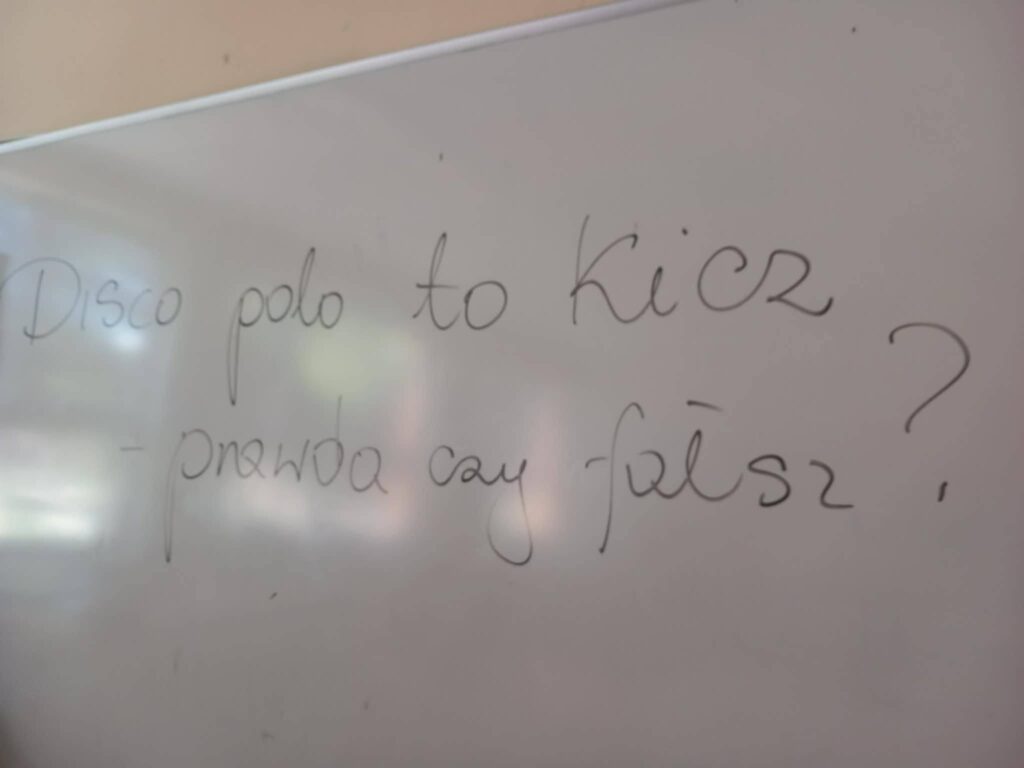 Disco polo to Kicz
- prawda czy fałsz?